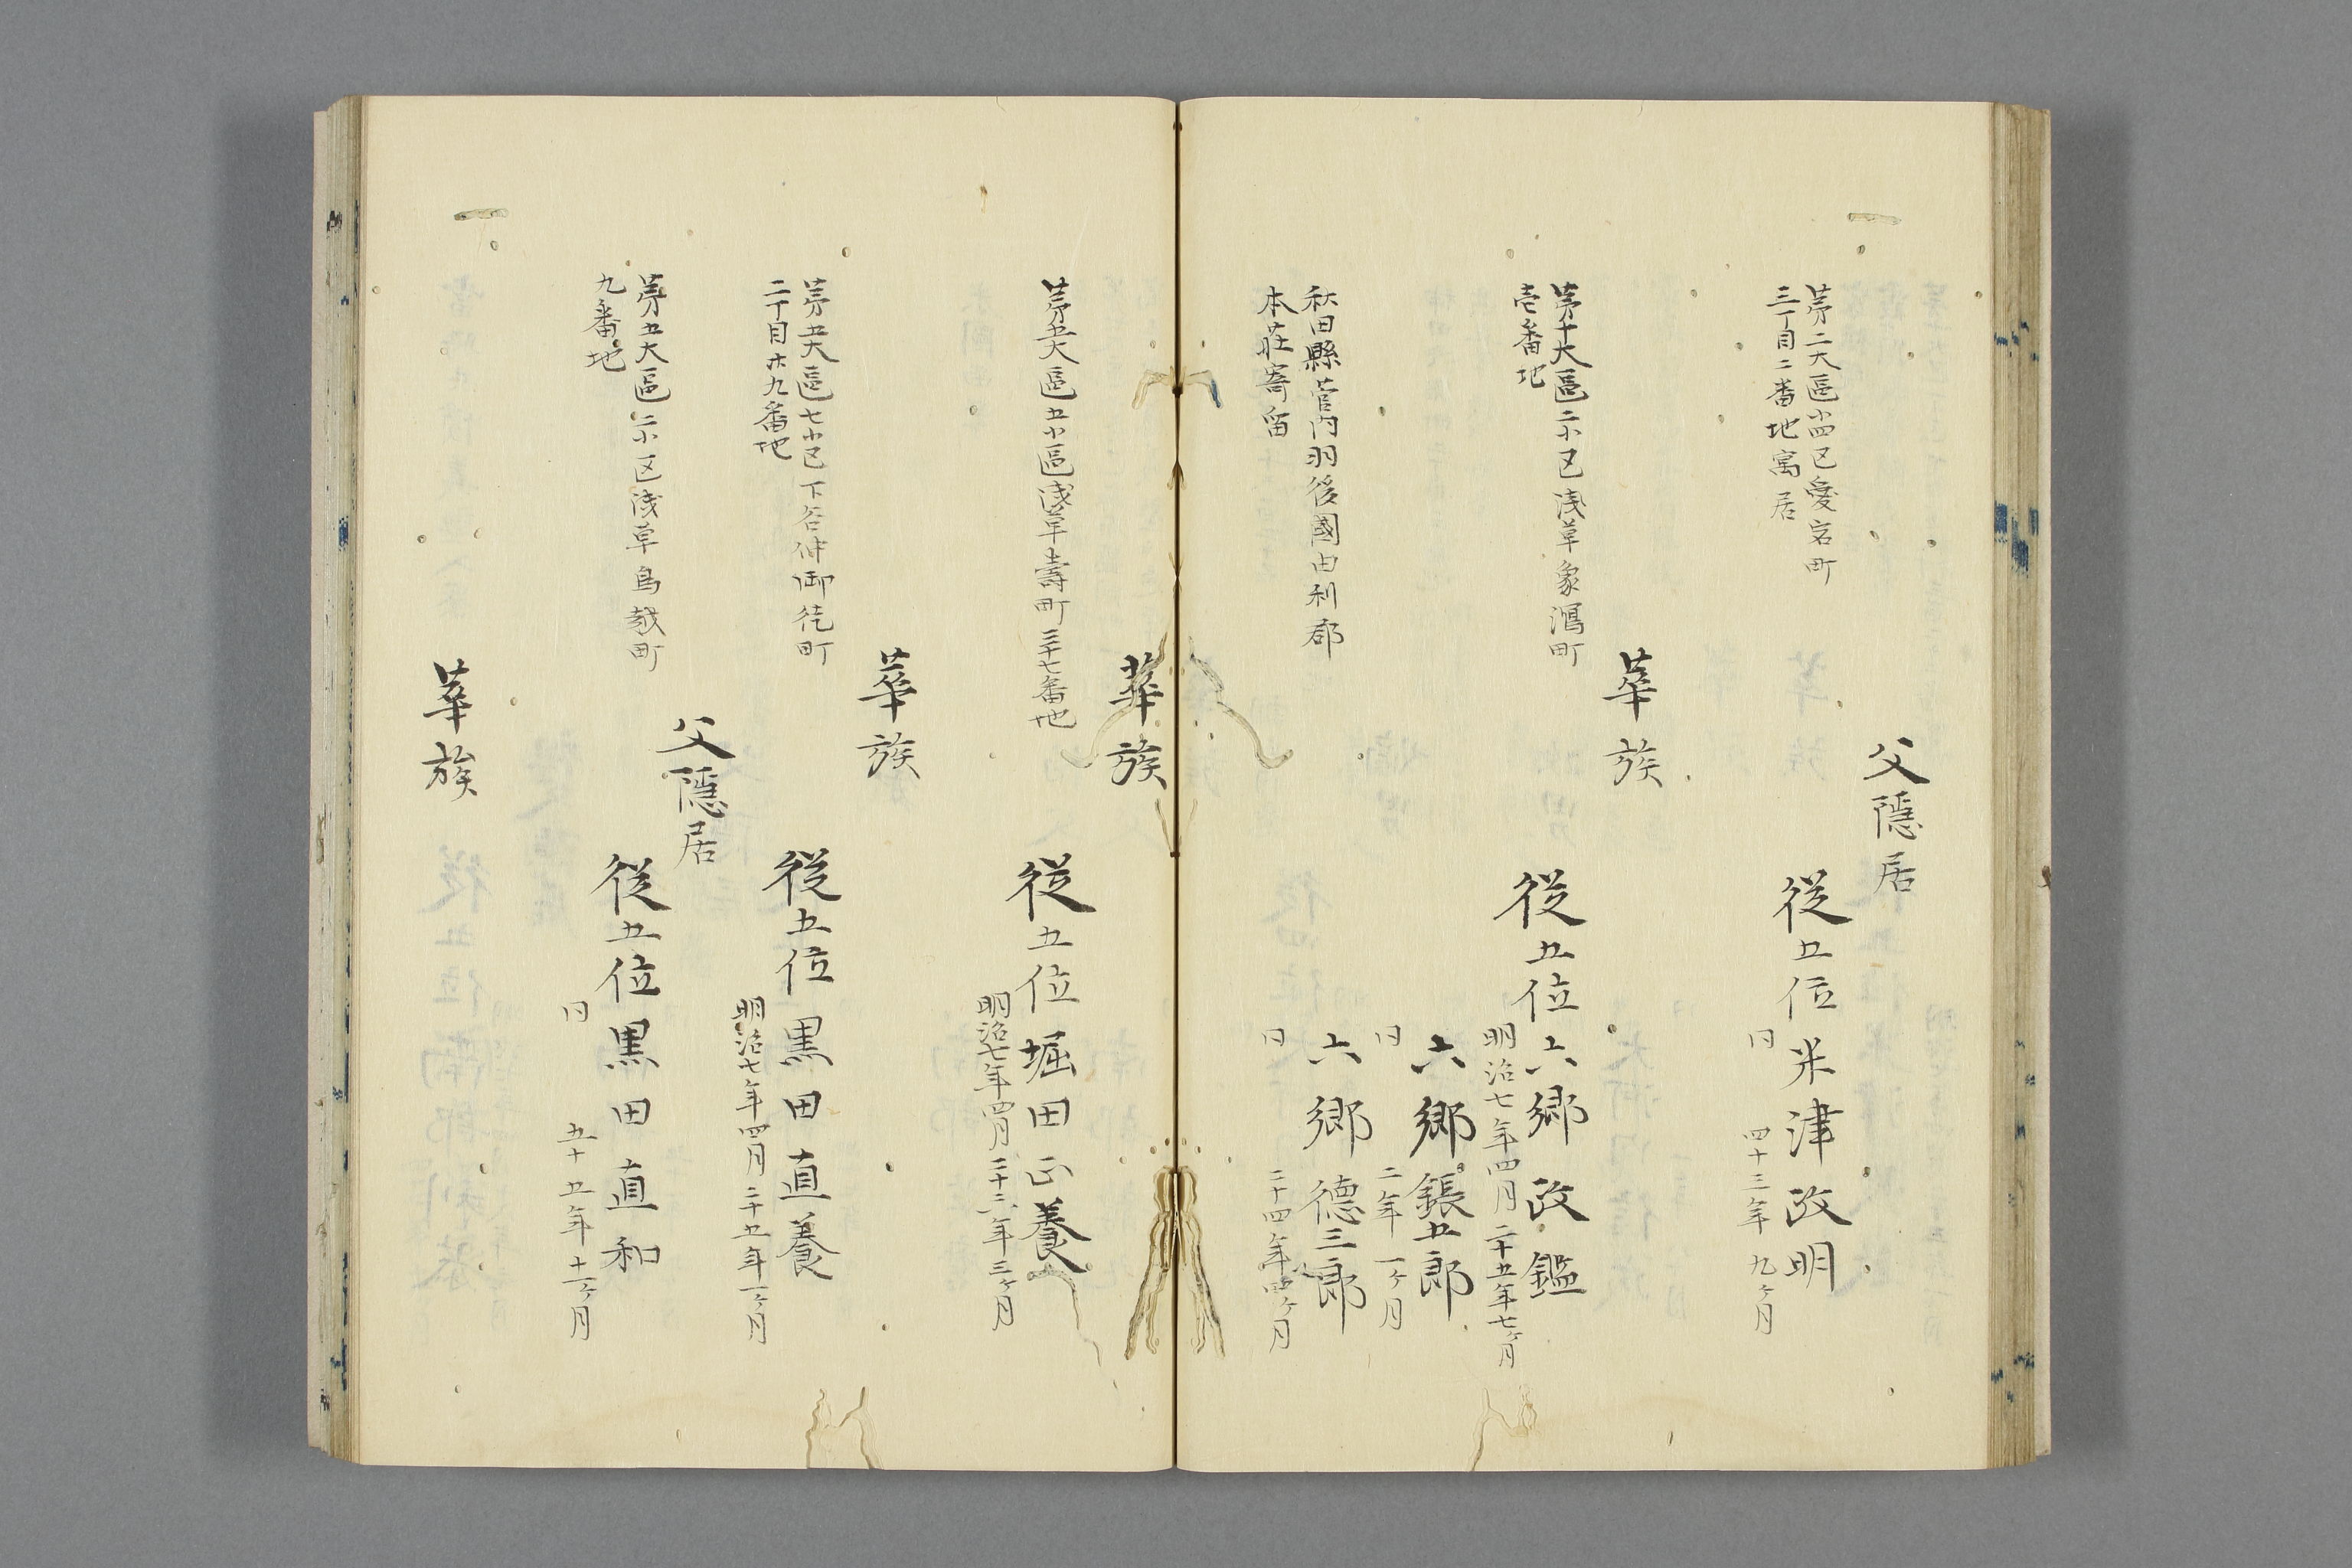 父隠居
第二大區小四区愛宕町
三丁目二番地寓居
従五位米津政明
同 四十三年九ヶ月
華族
第十大區二小区浅草象潟町
壱番地
従五位六郷政鑑
明治七年四月二十五年七ヶ月
六郷鋹五郎
同 二年一ヶ月
秋田縣菅内羽後國由利郡
本荘寄留
六郷德三郎
同 二十四年四ヶ月
華族
第五大區五小區浅草壽町三十七番地
従五位堀田正養
明治七年四月二十六年三ヶ月
華族
第五大區七小区下谷仲御徒町
二丁目廿九番地
従五位黒田直養
明治七年四月二十五年一ヶ月
父隠居
第五大區二小区浅草鳥越町
九番地
従五位黒田直和
同 五十五年十一ヶ月
華族